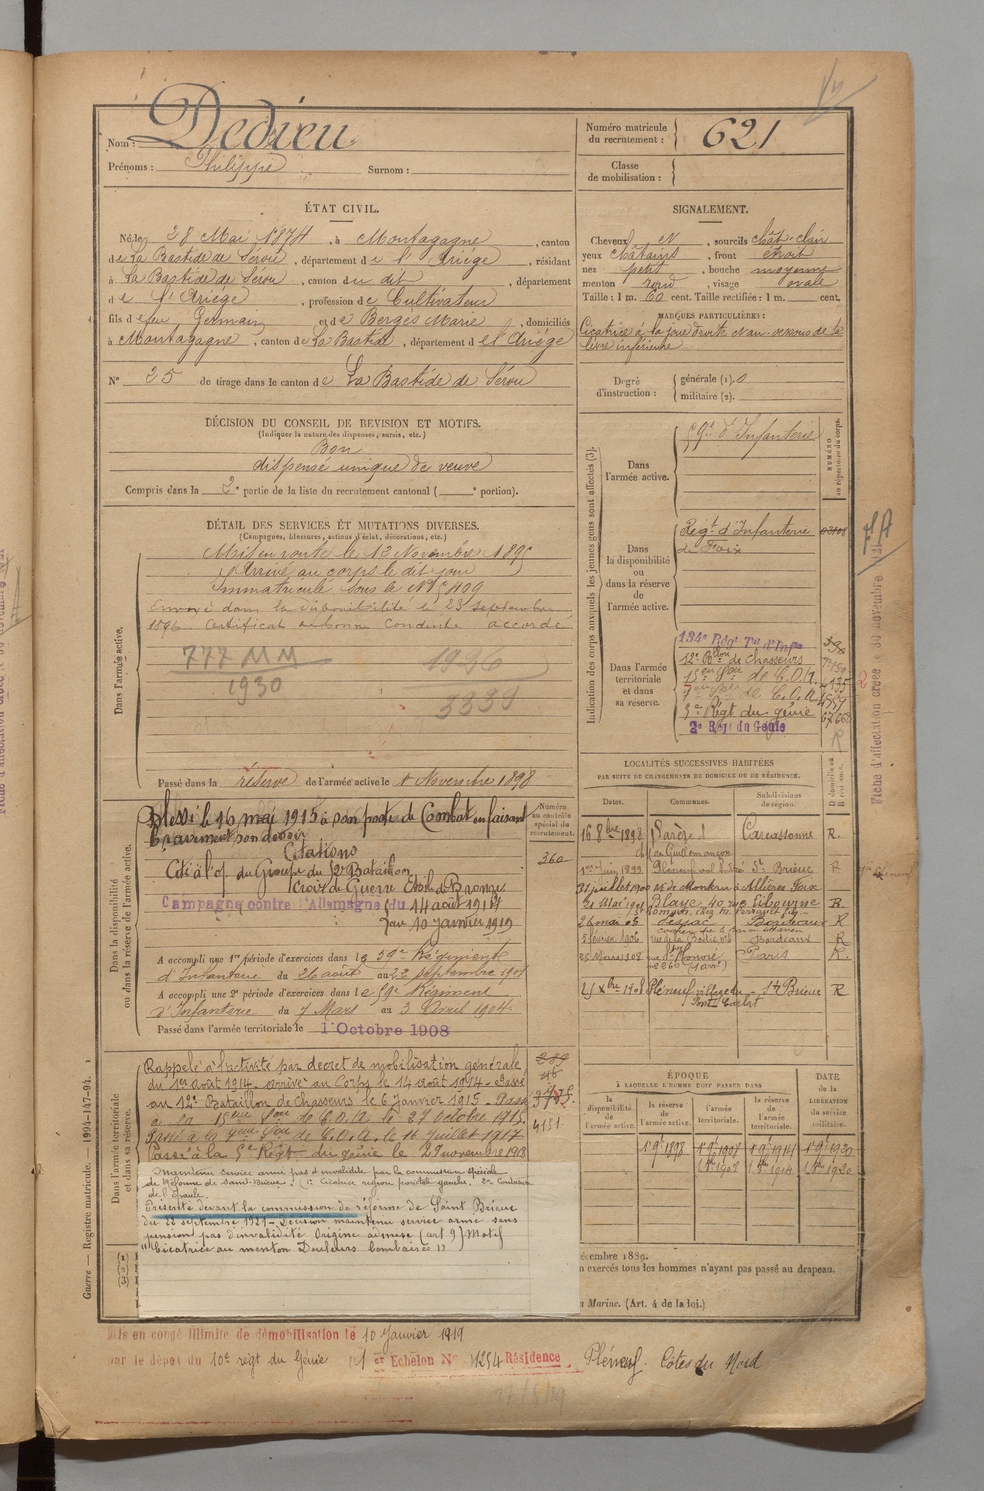 Nom : Dedieu
Prénoms : Philippe Surnom :
Numéro matricule du recrutement : 621
Classe de mobilisation :
ÉTAT CIVIL.
Né le 28 Mai 1874, à Montagagne, canton
de La Bastide de Sérou, département de l'Ariège, résidant
à La Bastide de Sérou, canton du dit, département
de l'Ariège, profession de Cultivateur
fils de feu Germain et de Berges Marie, domiciliés
à Montagagne, canton de La Bastide, département de l'Ariège
N° 25 de tirage dans le canton de La Bastide de Sérou
SIGNALEMENT.
Cheveux N, sourcils chât. clair
yeux châtains, front étroit
nez petit, bouche moyenne
menton rond, visage ovale
Taille : 1 m. 60 cent. Taille rectifiée : 1 m. cent.
MARQUES PARTICULIÈRES :
Cicatrice à la joue droite et au-dessous de la
lèvre inférieure
Degré d'instruction : générale (1). 0
militaire (2).
DÉCISION DU CONSEIL DE REVISION ET MOTIFS.
(Indiquer la nature des dispenses, sursis, etc.)
Bon
dispensé unique de veuve
Compris dans la 2e partie de la liste du recrutement cantonal ( e portion).
DÉTAIL DES SERVICES ET MUTATIONS DIVERSES.
(Campagnes, blessures, actions d'éclat, décorations, etc.)
Dans l'armée active.
Mis en route le 12 Novembre 189
Arrivé au corps le dit jour
immatriculé sous le N°
Envoyé dans la disponibilité le 23 septembre
1896 Certificat de bonne conduite accordé
777 MM
1930
1936
3339
Passé dans la réserve de l'armée active le 1 Novembre 1898
Dans la disponibilité ou dans la réserve de l'armée active.
Blessé le 16 mai 1915 à son poste de Combat en faisant
bravement son devoir
Citations
Cité à l'o/ du Groupe du 12e Bataillon
Croix de Guerre Etoile de Bronze
Campagne contre l'Allemagne du 14 août 1914
au 10 janvier 1919
A accompli une 1re période d'exercices dans le 59e Régiment
d'Infanterie du 26 août au 22 septembre 1901
A accompli une 2e période d'exercices dans le 59e Régiment
d'Infanterie du 7 Mars au 3 Avril 1904
Passé dans l'armée territoriale le 1 Octobre 1908
Numéro au contrôle spécial du recrutement.
360
Dans l'armée territoriale et dans sa réserve.
Rappelé à l'activité par decret de mobilisation générale
du 1er août 1914 - arrivé au Corps le 14 août 1914 - Passé
au 12e Bataillon de chasseurs le 6 janvier 1915 - Passé
à la 15eme Son de C.O.A. le 27 octobre 1915
Passé à la 7eme Son de C.O.A. le 16 juillet 1917
Passé à la 5e Régt du génie le 29 novembre 1918
4151
Maintenu service armé pas d'invalidité par la commission spéciale
de réforme de Saint-Brieuc : 1° Cicatrice région pariétale gauche. 2° Contusion
de l'épaule.
Présenté devant la commission de réforme de Saint Brieuc
du 22 septembre 1921 - Décision maintenu service armé sans
pension pas d'invalidité Origine admise (art 9) Motif
"Cicatrice au menton Douleurs lombaires"
Indication des corps auxquels les jeunes gens sont affectés (3).
NUMÉRO au répertoire du corps.
Dans l'armée active.
59e d'Infanterie
Dans la disponibilité ou dans la réserve de l'armée active.
Regt d'Infanterie
de Foix
Dans l'armée territoriale et dans sa réserve.
134e Régt Tal d'Infie
12e Bon de Chasseurs
15e Son de C.O.A.
7eme Son de C.O.A.
5e Régt du génie
2e Rgt du Génie
LOCALITÉS SUCCESSIVES HABITÉES
PAR SUITE DE CHANGEMENTS DE DOMICILE OU DE RÉSIDENCE.
Dates. Communes. Subdivisions de région. D domicile ou R résidence.
16 8bre 1898 Carcassonne R.
1er Juin 1899 Pléneuf St Brieuc R
21 Mai 1901 Blaye, 40 Libourne R
26 mai 05 Pessac Bordeaux R
5 février 1906 Bordeaux R
25 Mars 1908 rue St Honoré Paris R.
Xbre 1908 Pléneuf village du St Brieuc R
ÉPOQUE
À LAQUELLE L'HOMME DOIT PASSER DANS
la disponibilité de l'armée active. la réserve de l'armée active. l'armée territoriale. la réserve de l'armée territoriale.
DATE de la LIBÉRATION du service militaire.
1 9e 1898 1 9e 1908 1 9e 1914 1 9e 1920
écembre 1889.
n exercés tous les hommes n'ayant pas passé au drapeau.
a Marine. (Art. 4 de la loi.)
(1)
(2)
(3)
Guerre — Registre matricule. — 1994-147-94.
Fiche d'affectation créée le 30 novembre 1931
Mis en congé illimité de démobilisation le 10 Janvier 1919
par le dépôt du 10e régt du Génie 1er Echelon N° 11254 Résidence Pléneuf - Côtes du Nord